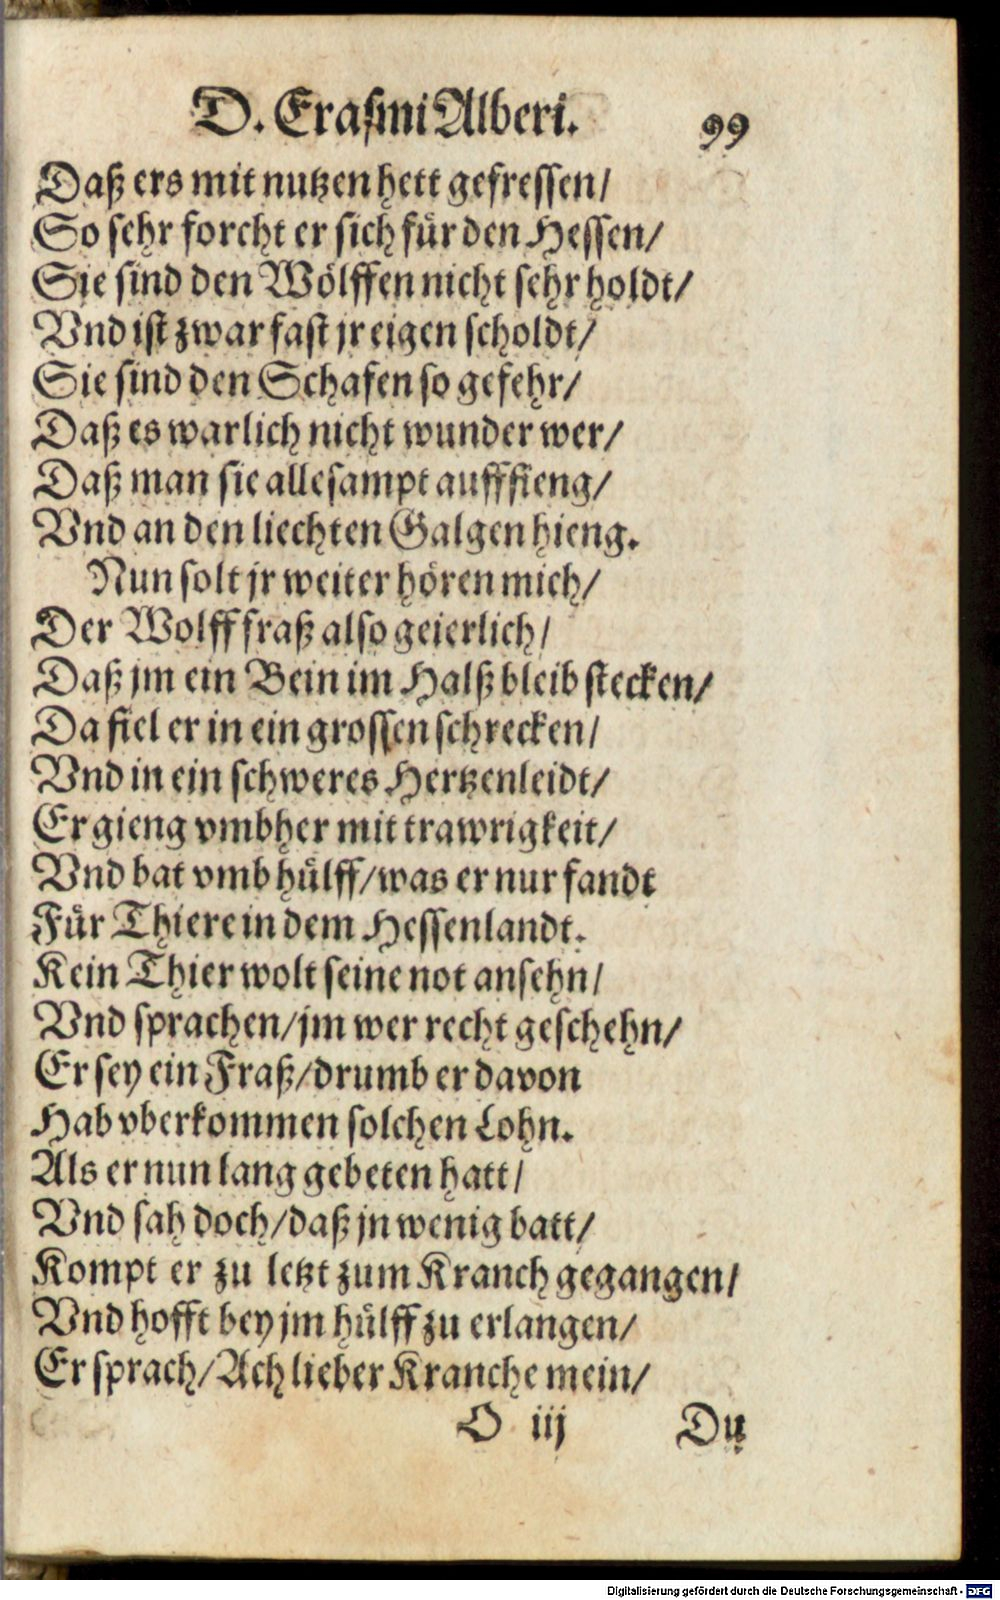 D. Erasmi Alberi. 99
Daß ers mit nutzen hett gefressen/
So sehr forcht er sich fuͤr den Hessen/
Sie sind den Woͤlffen nicht sehr holdt/
Vnd ist zwar fast jr eigen scholdt/
Sie sind den Schafen so gefehr/
Daß es warlich nicht wunder wer/
Daß man sie allesampt aufffieng/
Vnd an den liechten Galgen hieng.
Nun solt jr weiter hoͤren mich/
Der Wolff fraß also geierlich/
Daß jm ein Bein im Halß bleib stecken/
Da fiel er in ein grossen schrecken/
Vnd in ein schweres Hertzenleidt/
Er gieng vmbher mit trawrigkeit/
Vnd bat vmb huͤlff/was er nur fandt
Fuͤr Thiere in dem Hessenlandt.
Kein Thier wolt seine not ansehn/
Vnd sprachen/jm wer recht geschehn/
Er sey ein Fraß/drumb er davon
Hab vberkommen solchen Lohn.
Als er nun lang gebeten hatt/
Vnd sah doch/daß jn wenig batt/
Kompt er zu letzt zum Kranch gegangen/
Vnd hofft bey jm huͤlff zu erlangen/
Er sprach/Ach lieber Kranche mein/
O iij Du
Digitalisierung gefördert durch die Deutsche Forschungsgemeinschaft - DFG